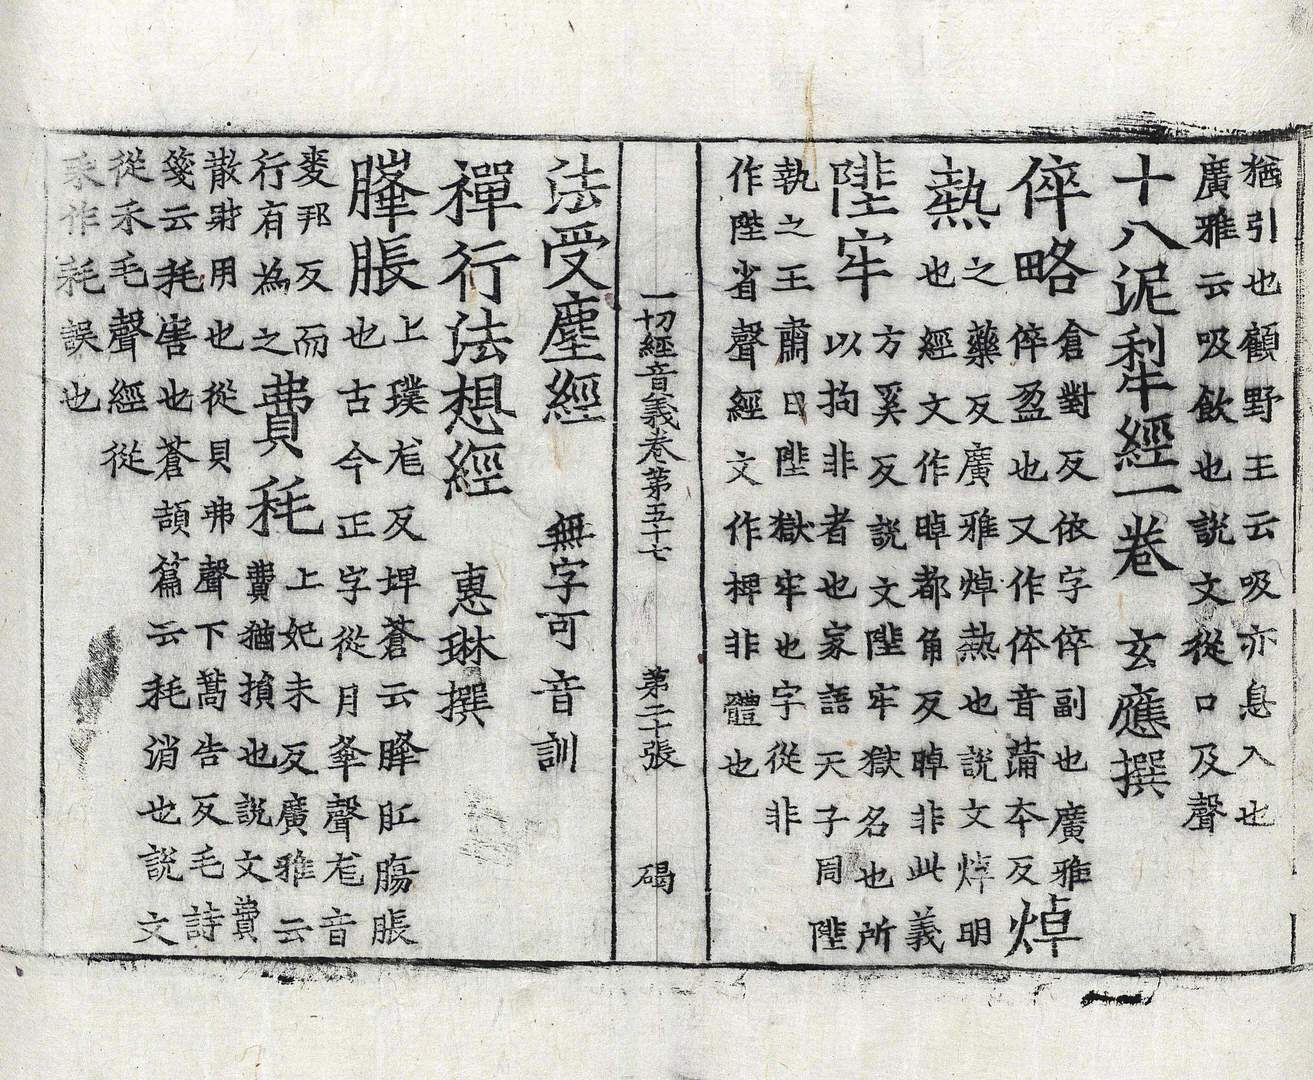 猶引也顧野王云吸亦息入也
廣雅云吸飲也說文從口及聲
十八泥犁經一卷 玄應撰
倅略 倉對反依字倅副也廣雅
倅盈也又作伜音蒲夲反 焯
熱 之藥反廣雅焯熱也說文焯明
也經文作晫都角反晫非此義
陛牢 方奚反說文陛牢獄名也所
以拘非者也家語天子周陛
執之王肅曰陛獄牢也字從非
作陛省聲經文作椑非體也
一切經音義卷第五十七 第二十張 碣
法受塵經 無字可音訓
禪行法想經 惠琳撰
膖脹 上璞尨反埤蒼云膖肛腸脹
也古今正字從月夆聲尨音
麥邦反 而
行有為之 費耗 上妃未反廣雅云
費猶損也說文費
散財用也從貝弗聲下蒿告反毛詩
箋云耗害也蒼頡篇云耗消也說文
從禾毛聲經從
耒作耗誤也